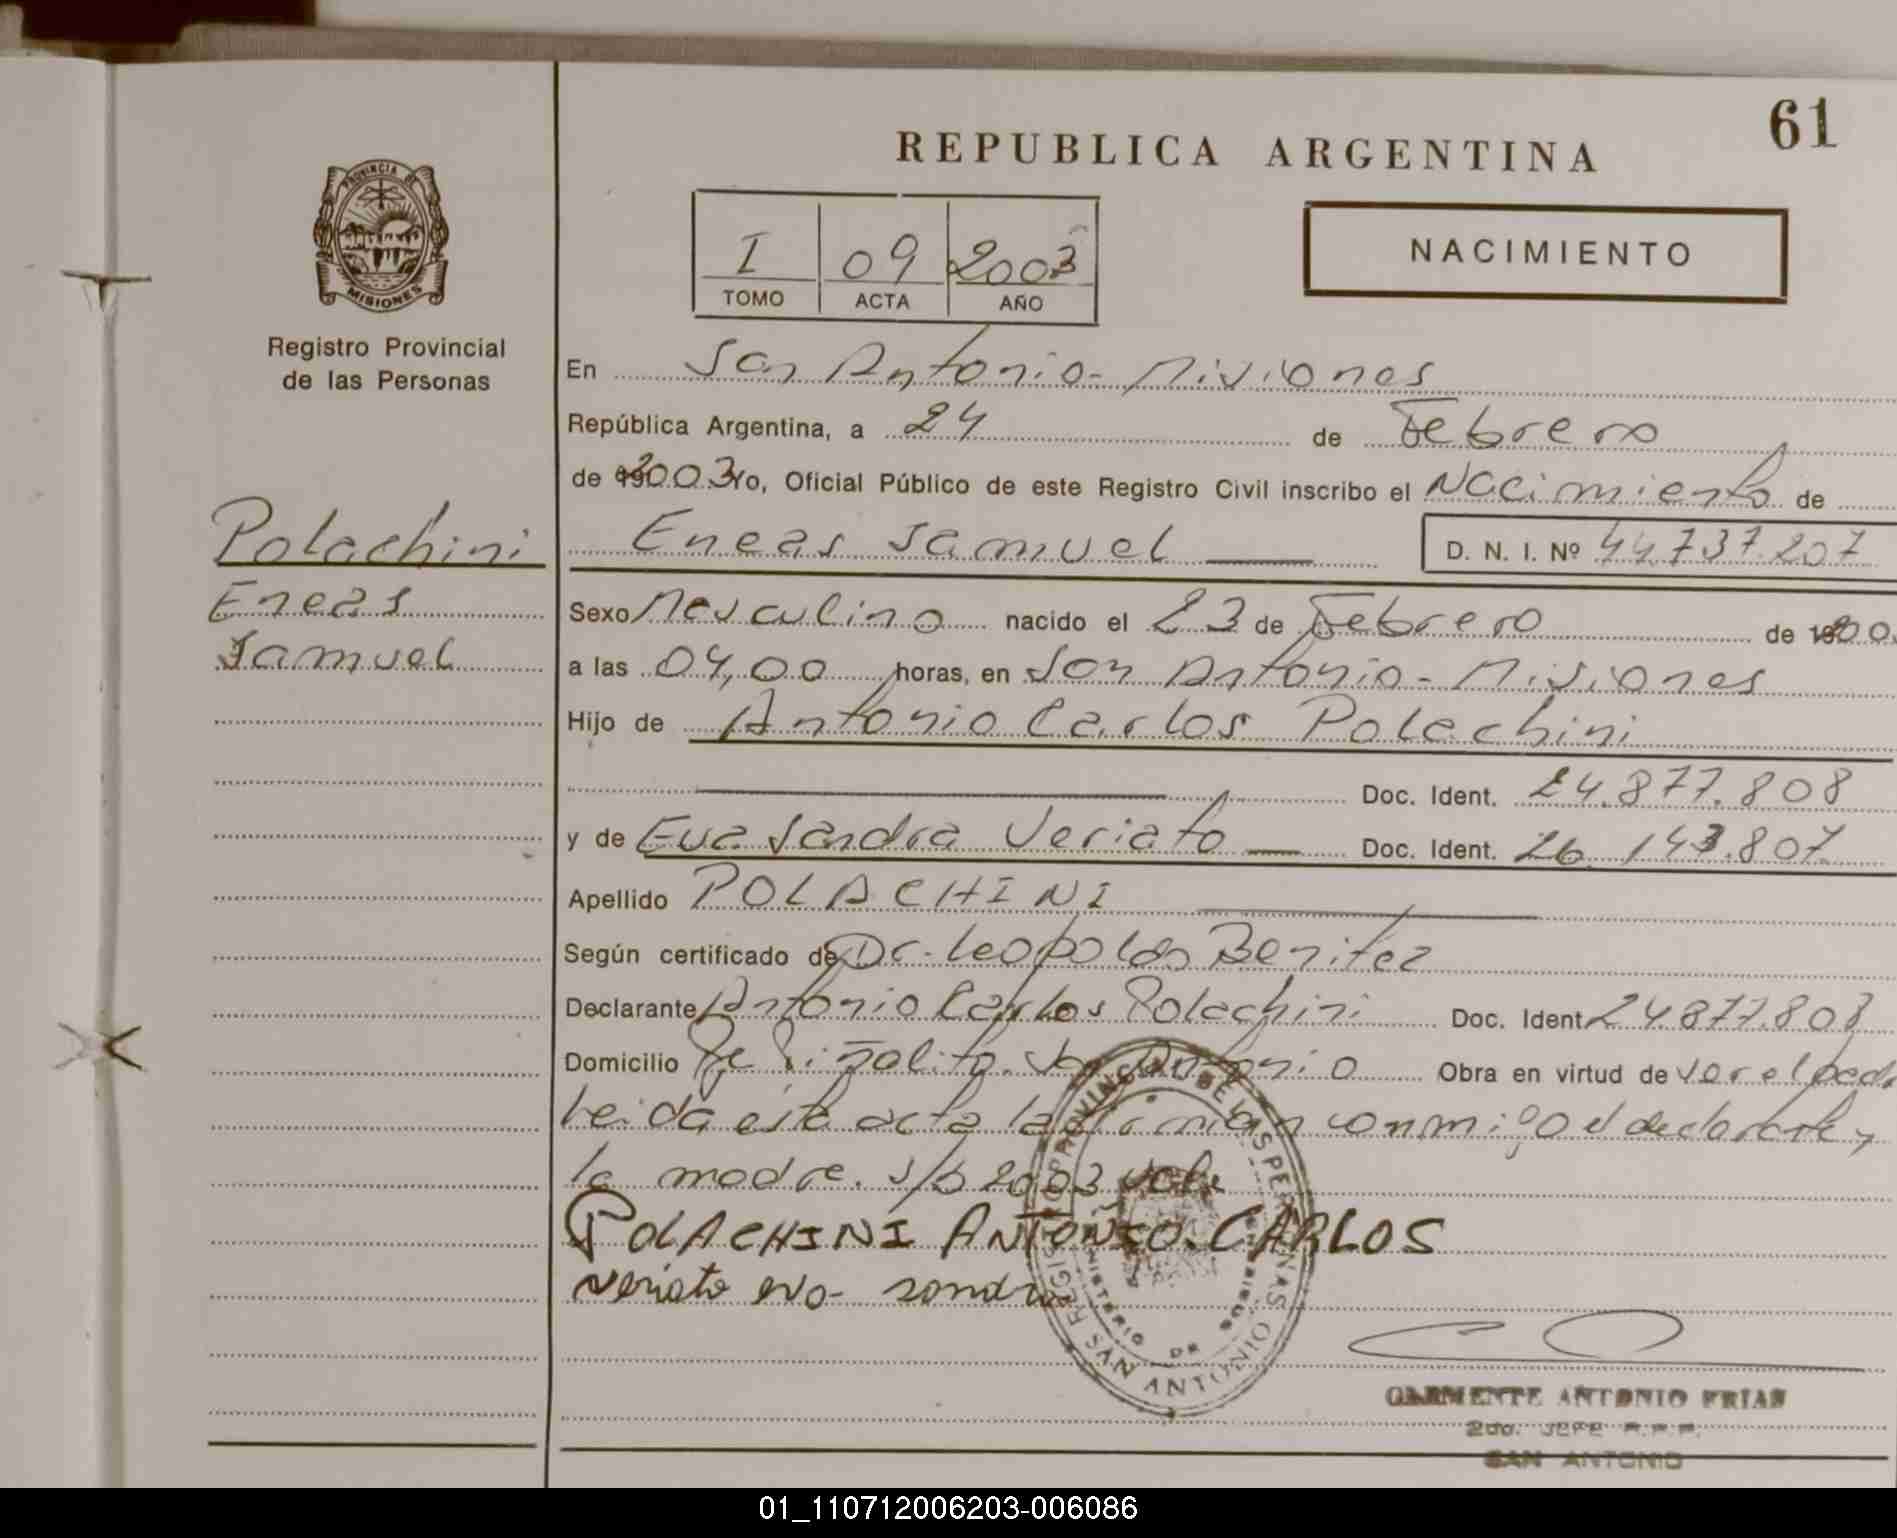 61
REPUBLICA ARGENTINA
PROVINCIA DE
MISIONES
Registro Provincial
de las Personas
I 09 2003
TOMO ACTA AÑO
NACIMIENTO
En San Antonio - Misiones
República Argentina, a 24 de Febrero
de 2003 Yo, Oficial Público de este Registro Civil inscribo el Nacimiento de
Polachini
Eneas Samuel
D. N. I. Nº 44.737.207
Eneas
Samuel
Sexo Masculino nacido el 23 de Febrero de 200
a las 04,00 horas, en San Antonio - Misiones
Hijo de Antonio Carlos Polachini
Doc. Ident. 24.877.808
y de Eva Sandra Veriato Doc. Ident. 26.143.807
Apellido POLACHINI
Según certificado de Dr. Leopoldo Benitez
Declarante Antonio Carlos Polachini Doc. Ident. 24.877.808
Domicilio Piñalito. San Antonio Obra en virtud de ser el padre
Leida este acta la firman conmigo el declarante y
la madre. S/b 2003 vale
POLACHINI ANTONIO. CARLOS
veriato eva sandra
REGISTRO PROVINCIAL DE LAS PERSONAS
MINISTERIO DE GOBIERNO
SAN ANTONIO
CLEMENTE ANTONIO FRIAS
2do. JEFE R.P.P.
SAN ANTONIO
01_110712006203-006086